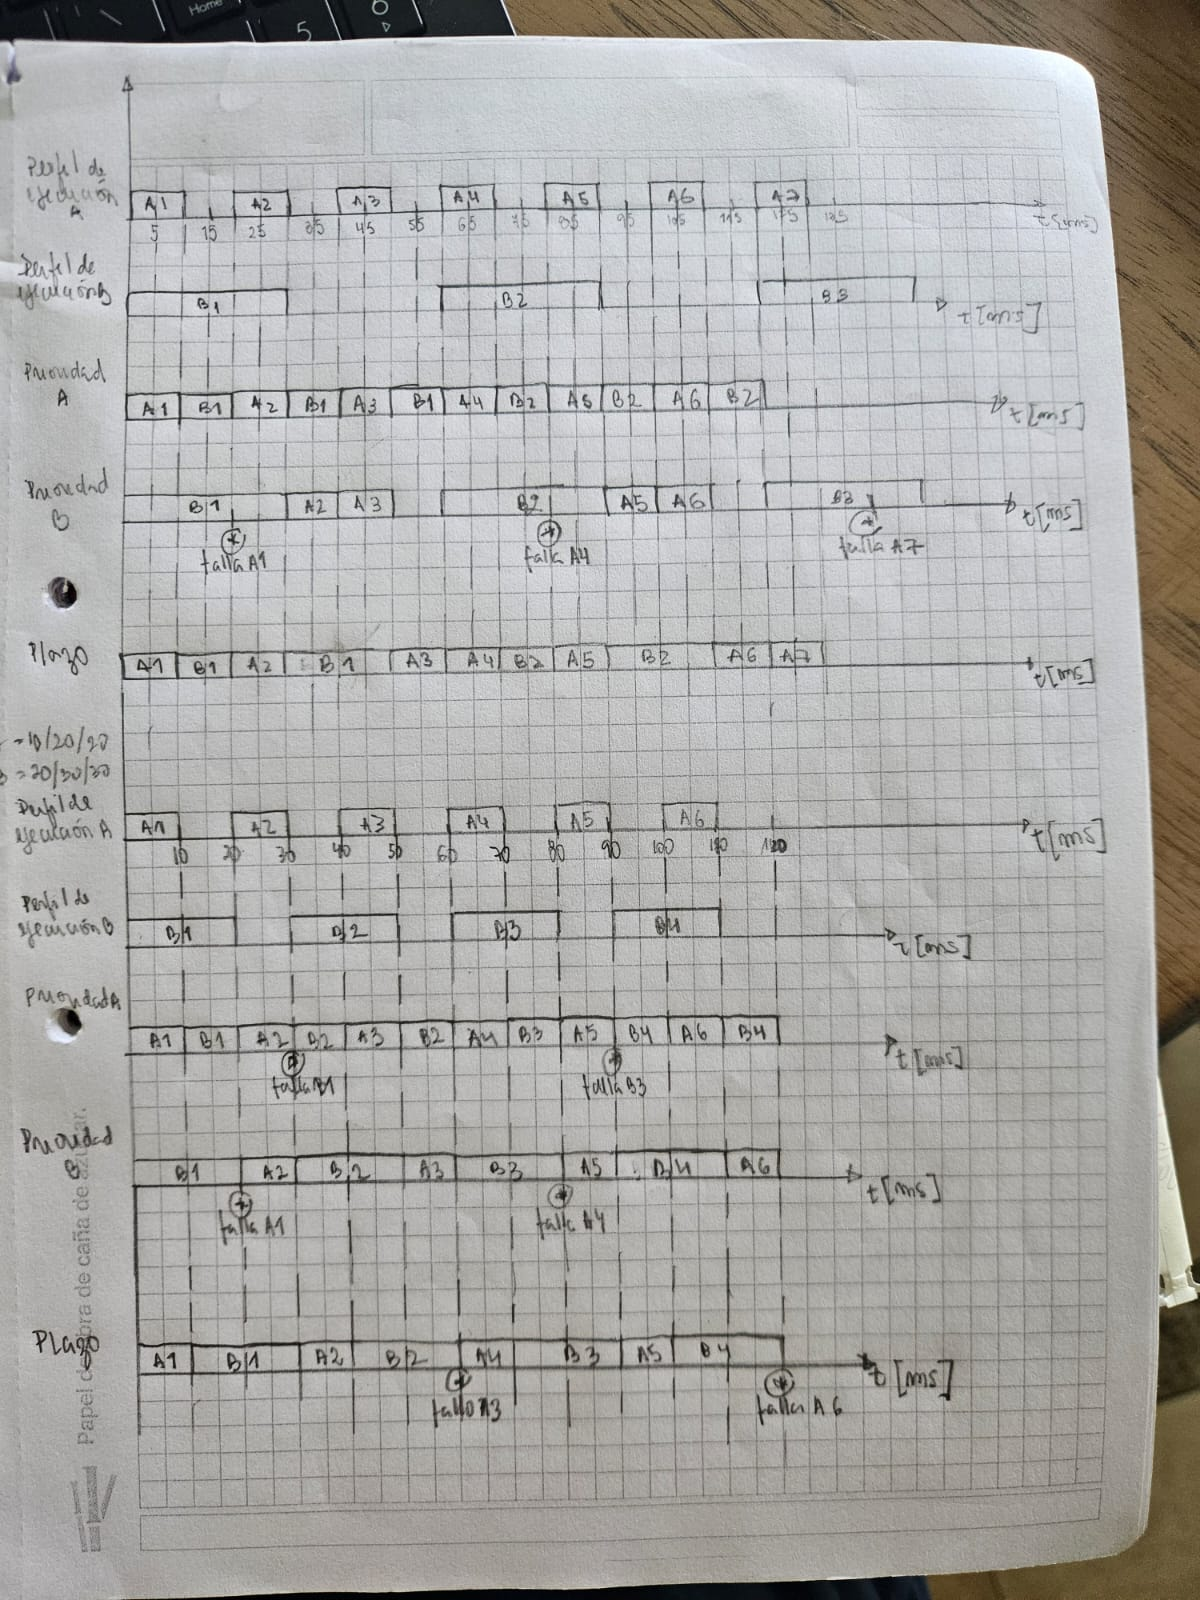 Home
5
Perfil de
ejecución
A
A1 A2 A3 A4 A5 A6 A7
5 15 25 35 45 55 65 75 85 95 105 115
t[ms]
Perfil de
ejecución B
B1 B2 B3
t[ms]
Prioridad
A
A1 B1 A2 B1 A3 B1 A4 B2 A5 B2 A6 B2
t[ms]
Prioridad
B
B1 A2 A3 B2 A5 A6 B3
t[ms]
falla A1 falla A4 falla A7
Plazo
A1 B1 A2 B1 A3 A4 B2 A5 B2 A6 A7
t[ms]
=10/20/20
=20/30/30
Perfil de
ejecución A
A1 A2 A3 A4 A5 A6
10 20 30 40 50 60 70 80 90 100 110 120
t[ms]
Perfil de
ejecución B
B1 B2 B3 B4
t[ms]
Prioridad A
A1 B1 A2 B2 A3 B2 A4 B3 A5 B4 A6 B4
t[ms]
falla B1 falla B3
Prioridad
B
B1 A2 B2 A3 B3 A5 B4 A6
t[ms]
falla A1 falla A4
Plazo
A1 B1 A2 B2 A4 B3 A5 B4
t[ms]
fallo A3 falla A6
Papel de fibra de caña de azúcar.